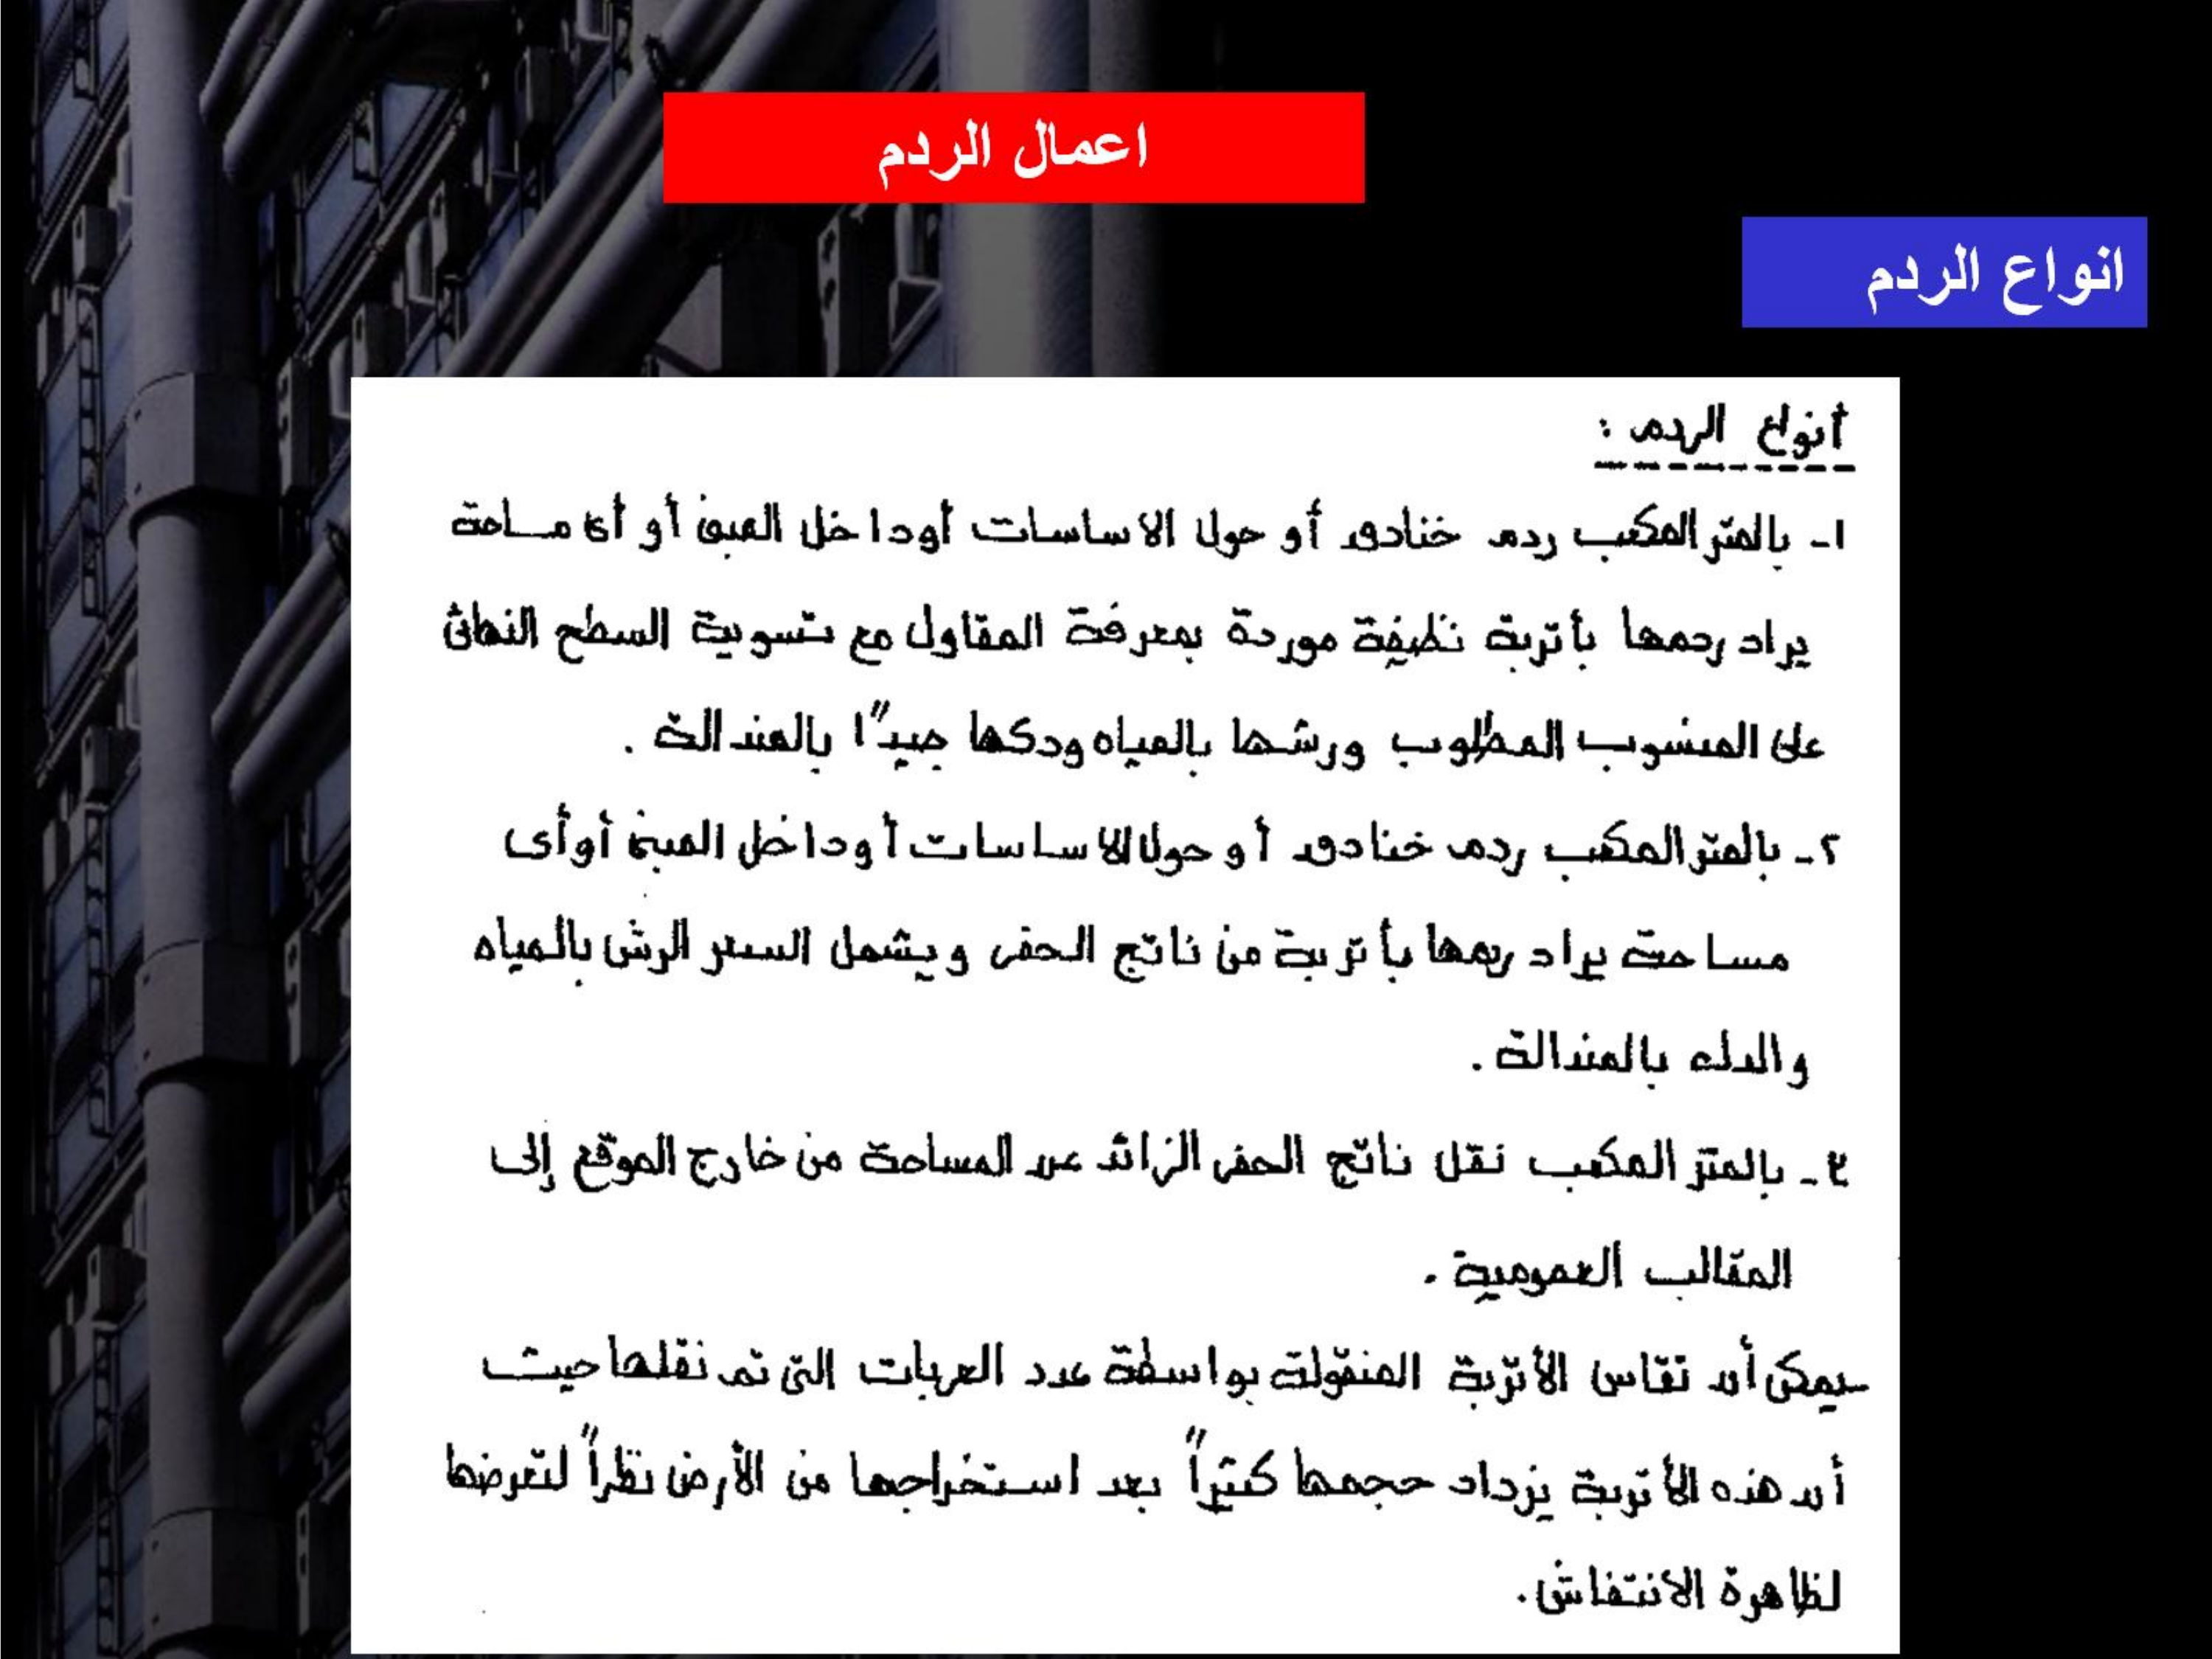 اعمال الردم
انواع الردم
أنواع الردم :
١- بالمتر المكعب ردم خنادق أو حول الاساسات أوداخل المبنى أو أى مساحة
يراد ردمها بأتربة نظيفة موردة بمعرفة المقاول مع تسوية السطح النهائى
على المنسوب المطلوب ورشها بالمياه ودكها جيداً بالمندالة .
٢- بالمتر المكعب ردم خنادق أو حول الاساسات أوداخل المبنى أوأى
مساحة يراد ردمها بأتربة من ناتج الحفر ويشمل السعر الرش بالمياه
والدك بالمندالة .
٣- بالمتر المكعب نقل ناتج الحفر الزائد عن المساحة من خارج الموقع إلى
المقالب العمومية .
يمكن أن تقاس الأتربة المنقولة بواسطة عدد العربات التى تم نقلها حيث
أن هذه الأتربة يزداد حجمها كثيراً بعد استخراجها من الأرض نظراً لتعرضها
لظاهرة الانتفاش.